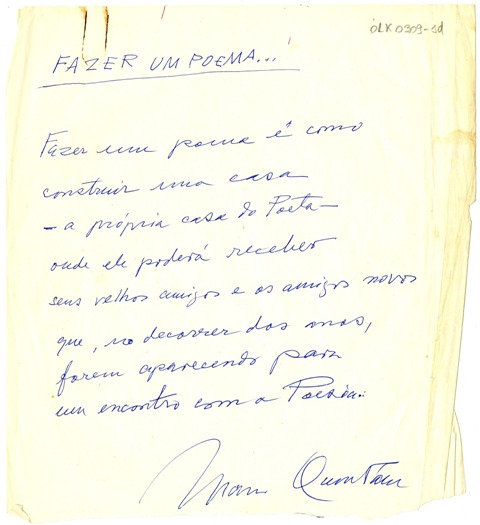 OLK 0309-1d
FAZER UM POEMA...
Fazer um poema é como
construir uma casa
— a própria casa do Poeta —
onde ele poderá receber
seus velhos amigos e os amigos novos
que, no decorrer dos anos,
forem aparecendo para
um encontro com a Poesia.
Mario Quintana